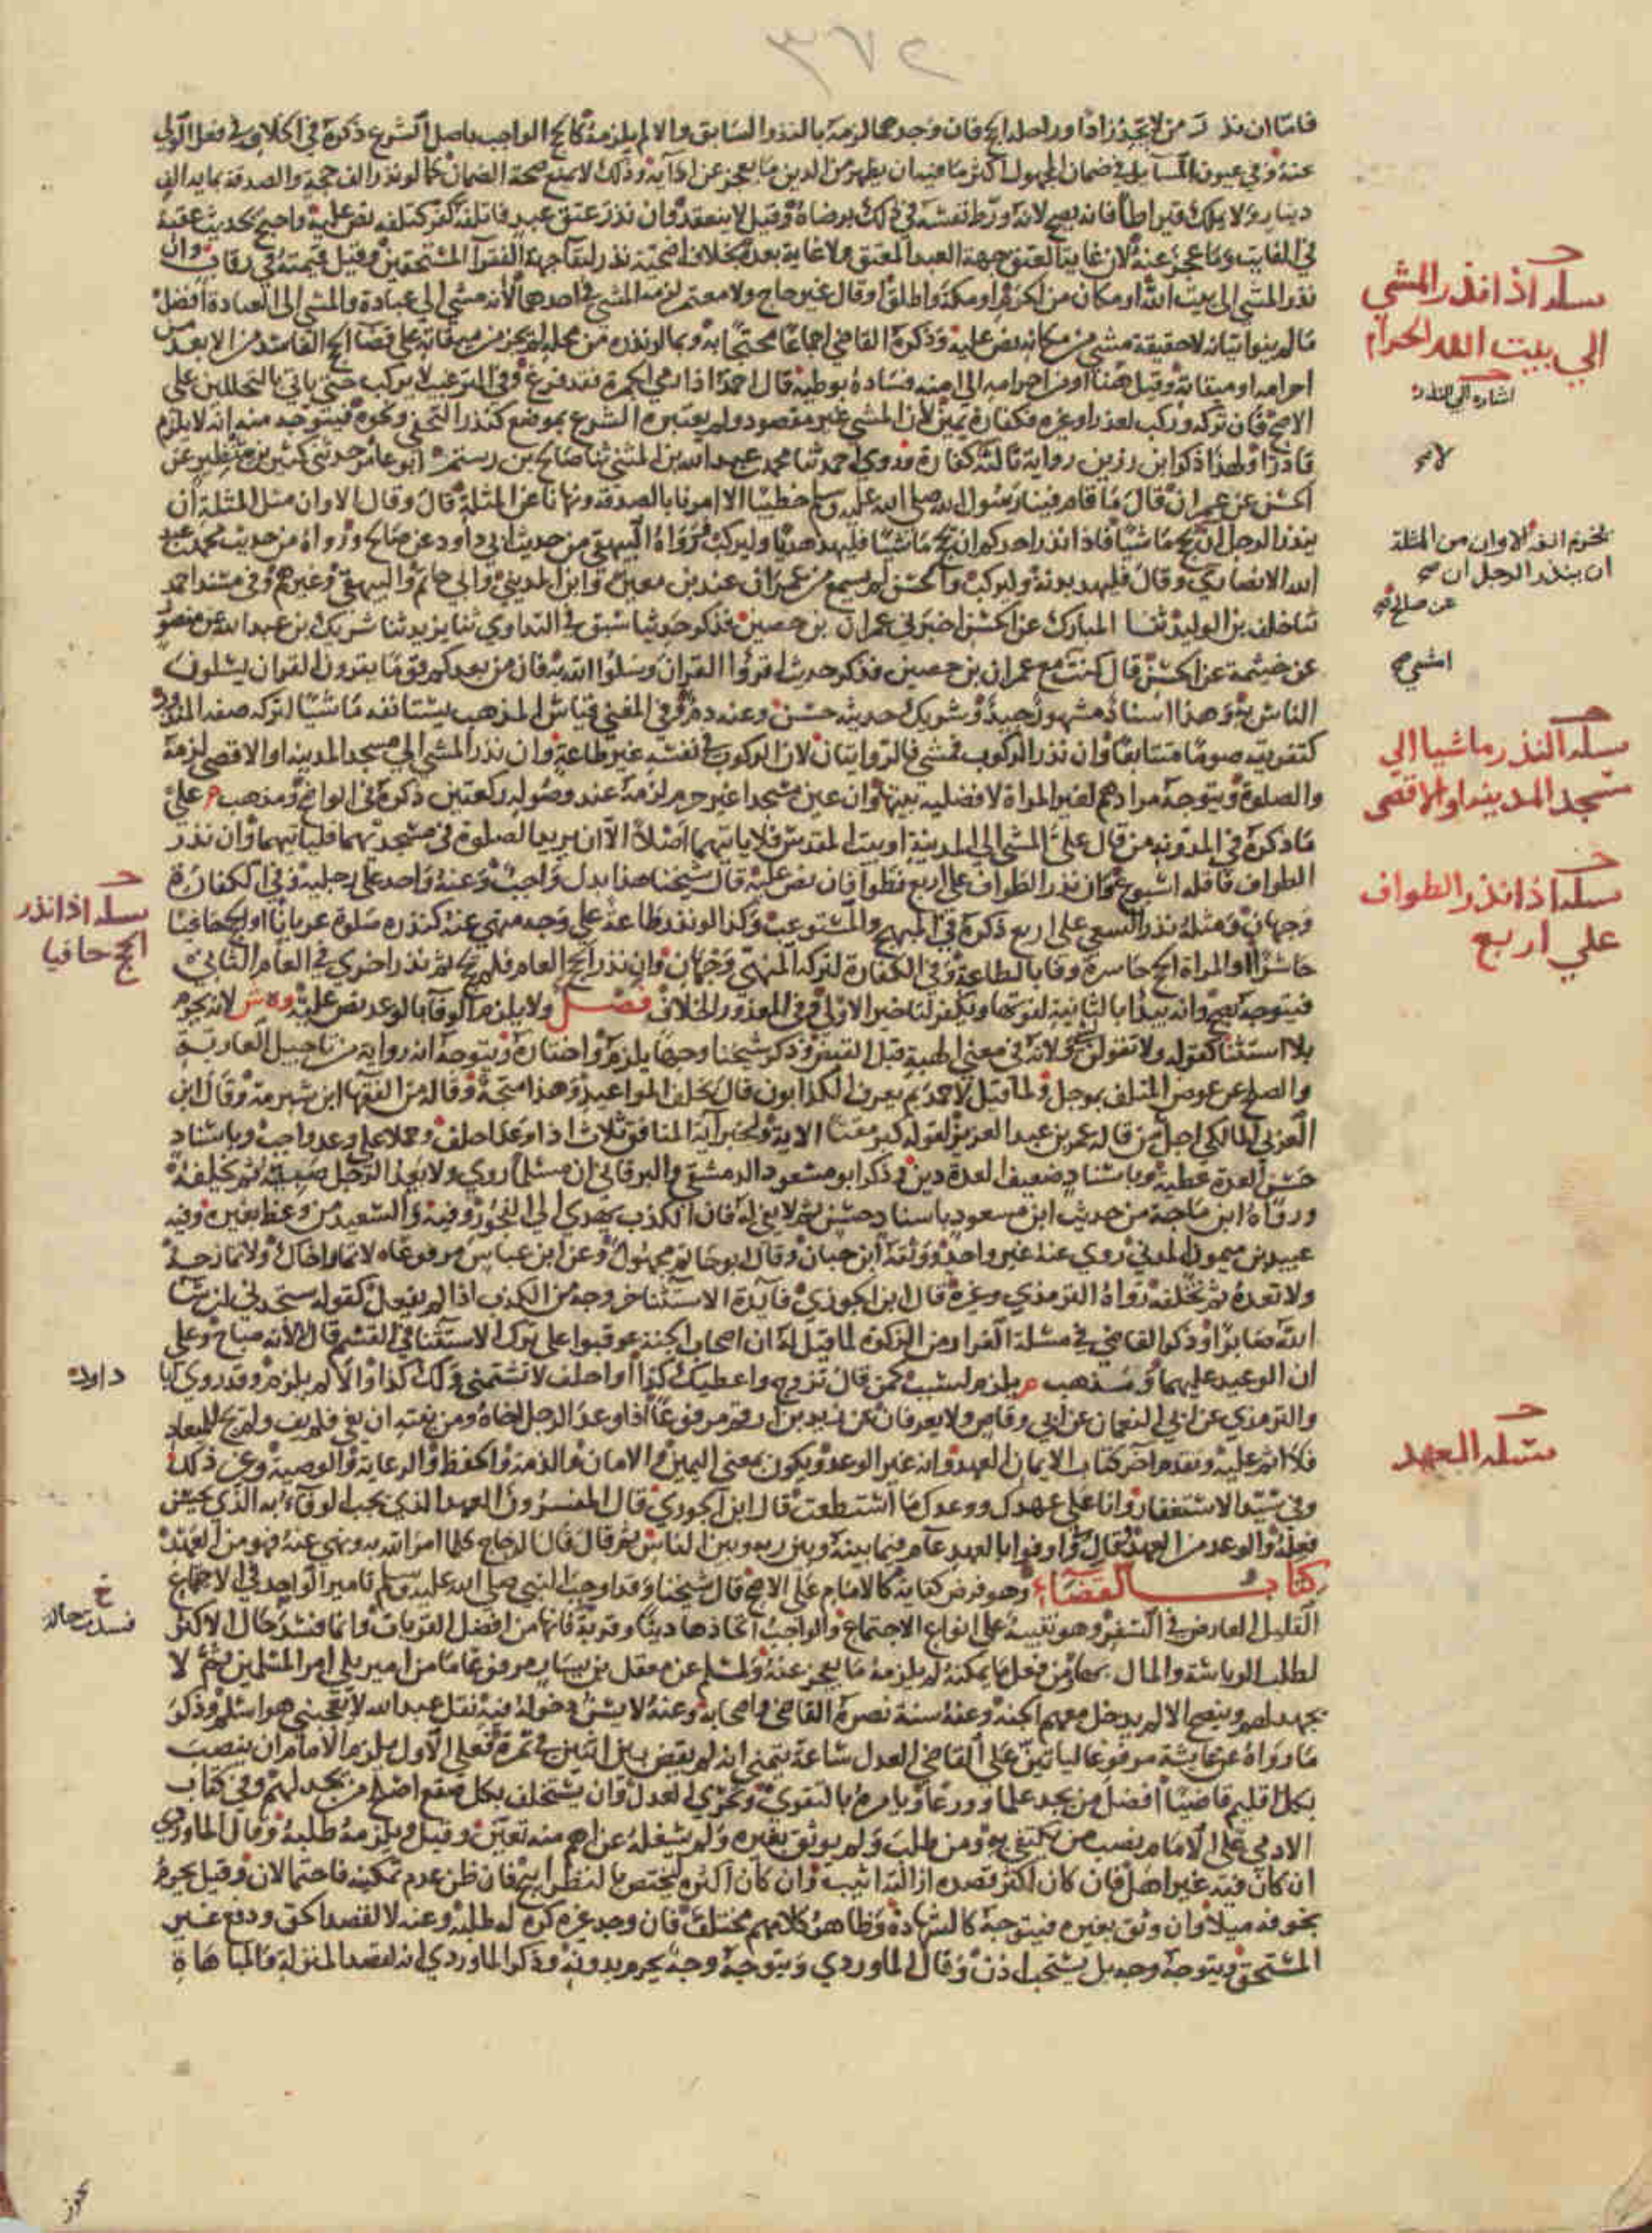 ٣٧٢
فاما ان نذر من لا يجد زادا وراحلة الحج فان وجدهما لزمه بالنذر السابق والا لم يلزمه كالحج الواجب باصل الشرع ذكره في الخلاف في فعل الولي
عنه وفي عيون المسائل في ضمان المجهول اكثر ما فيه ان يظهر من الدين ما يعجز عن ادائه وذلك لا يمنع صحة الضمان كما لو نذر الف حجة والصدقة بماية الف
دينار ولا يملك قيراطا فانه يصح لانه ورط نفسه في ذلك برضاه وقيل لا ينعقد وان نذر عتق عبد فاتلفه كفر كتلفه نص عليه واحتج بحديث عقبة
في الفايت وما عجز عنه لان غاية العتق جهة العبد المعتق ولا غاية بعده بخلاف اضحية نذر لبقا جهة الفقرا المستحقين وقيل قيمته في رقاب وان
نذر المشي الى بيت الله او مكان من الحرم او مكة واطلق او قال غير حاج ولا معتمر لزمه المشي في احدهما لانه مشي الى عبادة والمشي الى العبادة افضل
ما لم ينو اتيانه لا حقيقة مشي من مكانه نص عليه وذكره القاضي اجماعا محتجا به وبما لو نذره من محله لم يجز من ميقاته على قضا الحج الفاسد من الابعد من
احرامه او ميقاته وقيل هنا او من احرامه الى امنه فساده بوطئه قال احمد اذا رمى الجمرة فقد فرغ وفي الترغيب لا يركب حتى ياتي بالتحللين على
الاصح فان تركه وركب لعذر او غيره فكفارة يمين لان المشي غير مقصود ولم يعتبره الشرع بموضع كنذر التحفي ونحوه فيتوجه منه انه لا يلزم
قادرا ولهذا ذكر ابن رزين رواية ثالثة كفارة وروى احمد ثنا محمد بن عبد الله بن المثنى ثنا صالح بن رستم ابو عامر حدثني كثير بن شنظير عن
الحسن عن عمران قال ما قام فينا رسول الله صلى الله عليه وسلم خطيبا الا امرنا بالصدقة ونهانا عن المثلة قال وقال الا وان من المثلة ان
ينذر الرجل ان يحج ماشيا فاذا نذر احدكم ان يحج ماشيا فليهد هديا وليركب ورواه البيهقي من حديث ابي داود عن صالح ورواه من حديث محمد بن عبد
الله الانصاري وقال فليهد بدنة وليركب والحسن لم يسمع من عمران عند بن معين وابن المديني وابي حاتم والبيهقي وغيرهم وفي مسند احمد
ثنا خلف بن الوليد ثنا المبارك عن الحسن اخبرني عمران بن حصين فذكر حديثا سبق في التداوي ثنا يزيد ثنا شريك بن عبد الله عن منصور
عن خيثمة عن الحسن قال كنت مع عمران بن حصين فذكر حديث اقرؤا القران وسلوا الله به فان من بعدكم قوما يقرون القران يسلون
الناس به وهذا اسناد مشهور جيد وشريك حديثه حسن وعنه دم وفي المغني قياس المذهب يستانفه ماشيا لتركه صفة المنذور
كتفريقه صوما متتابعا وان نذر الركوب فمشي فالروايتان لان الركوب في نفسه غير طاعة وان نذر المشي الى مسجد المدينة او الاقصى لزمه
والصلوة ويتوجه مرادهم لغير المراة لافضلية بيتها وان عين مسجدا غير حرم لزمه عند وصوله ركعتين ذكره في الواضح ومذهب م على
ما ذكره في المدونة من قال علي المشي الى المدينة او بيت المقدس فلا ياتيهما اصلا الا ان يريد الصلوة في مسجديهما فلياتيهما وان نذر
الطواف فاقله اسبوع وان نذر الطواف على اربع فطوافان نص عليه قال شيخنا هذا بدل واجب وعنه واحد على رجليه وفي الكفارة
وجهان ومثله نذر السعي على اربع ذكره في المبهج والمستوعب وكذا لو نذر طاعة على وجه منهي عنه كنذره صلوة عريانا او الحج حافيا
حاسرا او المراة الحج حاسرة وفا بالطاعة وفي الكفارة لتركه المنهي وجهان وان نذر الحج العام فلم يحج ثم نذر اخرى في العام الثاني
فيتوجه يصح وانه يبدا بالثانية لفوتها ويكفر لتاخير الاولى وفي المعذور الخلاف فصل ولا يلزم الوفا بالوعد نص عليه وه ش لانه يحرم
بلا استثنا كقوله ولا تقولن لشي ولانه في معنى الهبة قبل القبض وذكر شيخنا وجها يلزم واختاره ويتوجه انه رواية من تاجيل العارية
والصلح عن عوض المتلف بموجل ولما قيل لاحمد بم يعرف الكذابون قال بخلف المواعيد وهذا متجه وقاله من الفقها ابن شبرمة وقال ابن
العربي المالكي اجل من قاله عمر بن عبد العزيز لقوله كبر مقتا الاية ولخبر اية المنافق ثلاث اذا وعد اخلف وحملا على وعد واجب وباسناد
حسن العدة عطية وباسناد ضعيف العدة دين وذكر ابو مسعود الدمشقي والبرقاني ان مسلما روى ولا يعد الرجل صبيه ثم يخلفه
ورواه ابن ماجة من حديث ابن مسعود باسناد حسن ثم لا يفي له فان الكذب يهدي الى الفجور وفيه والسعيد من وعظ بغيره وفيه
عبيد بن ميمون المدني روى عنه غير واحد ووثقه ابن حبان وقال ابو حاتم مجهول وعن ابن عباس مرفوعا لا تمار اخاك ولا تمازحه
ولا تعده ثم تخلفه رواه الترمذي وغيره قال ابن الجوزي فايدة الاستثنا خروجه من الكذب اذا لم يفعل كقوله ستجدني ان شا
الله صابرا وذكر القاضي في مسئلة الفرار من الزكوة لما قيل له ان اصحاب الجنة عوقبوا على ترك الاستثنا في القسم قال لا لانه مباح وعلى
ان الوعيد عليهما ومذهب م يلزم لسبب كمن قال تزوج واعطيك كذا او احلف لا تشتمني ولك كذا والا لم يلزم وقد روى ابا
والترمذي عن ابي النعمان عن ابي وقاص ولا يعرفان عن زيد بن ارقم مرفوعا اذا وعد الرجل اخاه ومن نيته ان يفي فلم يف ولم يجئ للميعاد
فلا اثم عليه وتقدم اخر كتاب الايمان العهد وانه غير الوعد ويكون بمعنى اليمين والامان والذمة والحفظ والرعاية والوصية وغير ذلك
وفي سيد الاستغفار وانا على عهدك ووعدك ما استطعت قال ابن الجوزي قال المفسرون العهد الذي يجب الوفاء به الذي يحسن
فعله والوعد من العهد وقال في واوفوا بالعهد عام فيما بينه وبين ربه وبين الناس ثم قال قال الزجاج كلما امر الله به ونهى عنه فهو من العهد
كتاب القضاء وهو فرض كفاية كالامام على الاصح قال شيخنا وقد اوجب النبي صلى الله عليه وسلم تامير الواحد في الاجتماع
القليل العارض في السفر وهو تنبيه على انواع الاجتماع والواجب اتخاذها دينا وقربة فانها من افضل القربات وانما فسد حال الاكثر
لطلب الرياسة والمال بها ومن فعل ما يمكنه لم يلزمه ما يعجز عنه ولمسلم عن معقل بن يسار مرفوعا ما من امير يلي امر المسلمين ثم لا
يجهد لهم وينصح الا لم يدخل معهم الجنة وعنه سنة نصره القاضي واصحابه وعنه لا يسن دخوله فيه نقل عبد الله لا يعجبني هو اسلم وذكر
ما رواه عن عايشة مرفوعا لياتين على القاضي العدل ساعة يتمنى انه لم يقض بين اثنين في تمرة فعلى الاول يلزم الامام ان ينصب
بكل اقليم قاضيا افضل من يجد علما وورعا ويامره بالتقوى وتحري العدل وان يستخلف بكل صقع اصلح من يجد لهم وفي كتاب
الادمي على الامام نصب من يكتفي به ومن طلب ولم يوثق بغيره ولم يشغله عن اهم منه تعين وقيل ويلزمه طلبه وقال الماوردي
ان كان فيه غير اهل فان كان اكثر قصده ازالته اثيب وان كان اكثره ليختص بالنظر ابيح فان ظن عدم تمكينه فاحتمالان وقيل يحرم
بخوفه ميلا وان وثق بغيره فيتوجه كالشهادة وظاهر كلامهم مختلف فان وجد غيره كره له طلبه وعنه لا لقصد الحق ودفع غير
المستحق ويتوجه وجه بل يستحب اذن وقال الماوردي ويتوجه وجه يحرم بدونه وذكر الماوردي انه لقصد المنزلة والمباهاة
مسئله اذا نذر المشي
الي بيت الله الحرام
اشارة الي النذر
لانه
بخروم انفه الا وان من المثلة
ان ينذر الرجل ان صح
عن صالح
امشي صح
مسئله النذر ماشيا الي
مسجد المدينه او الاقصى
مسئله اذا نذر الطواف
علي اربع
مسئله العهد
مسئله اذا نذر
الحج حافيا
داود
خ
فسدت حاله